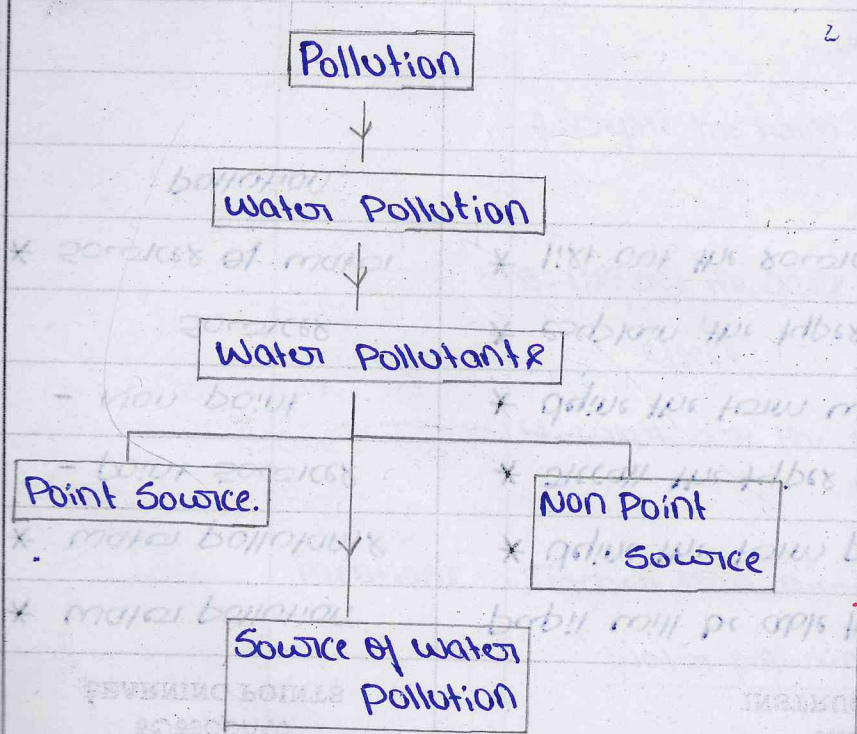 2
Pollution
Water Pollution
Water Pollutants
Point Source.
Non Point
Source
Source of water
Pollution